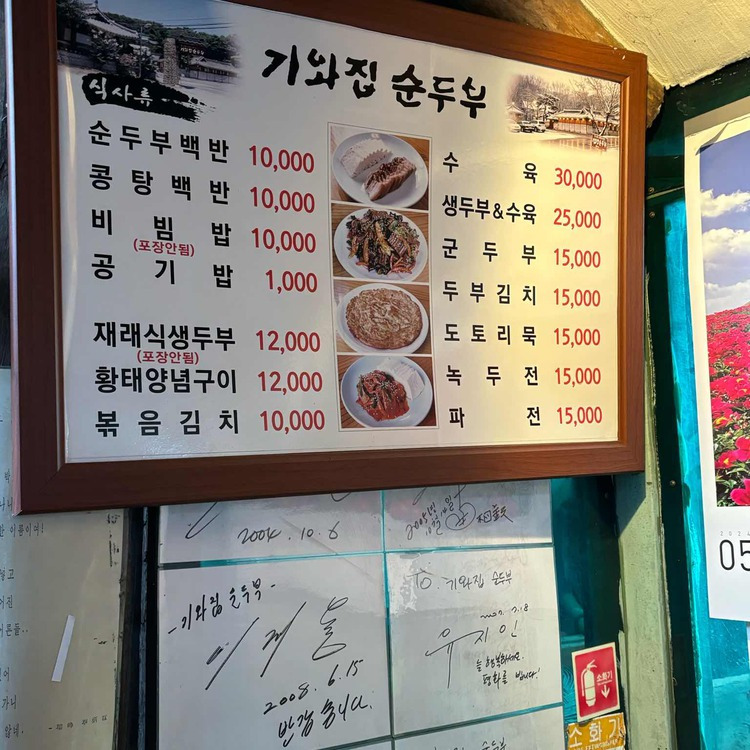 기와집 순두부
식사류
순두부백반 10,000
콩탕백반 10,000
비빔밥 10,000
(포장안됨)
공기밥 1,000
재래식생두부 12,000
(포장안됨)
황태양념구이 12,000
볶음김치 10,000
수육 30,000
생두부&수육 25,000
군두부 15,000
두부김치 15,000
도토리묵 15,000
녹두전 15,000
파전 15,000
2004.10.6
-기와집 순두부-
2008.6.15
반갑습니다.
To. 기와집 순두부
유지인
늘 행복하세요.
평화를 빕니다!
기와집 순두부
05
소화기
소화기